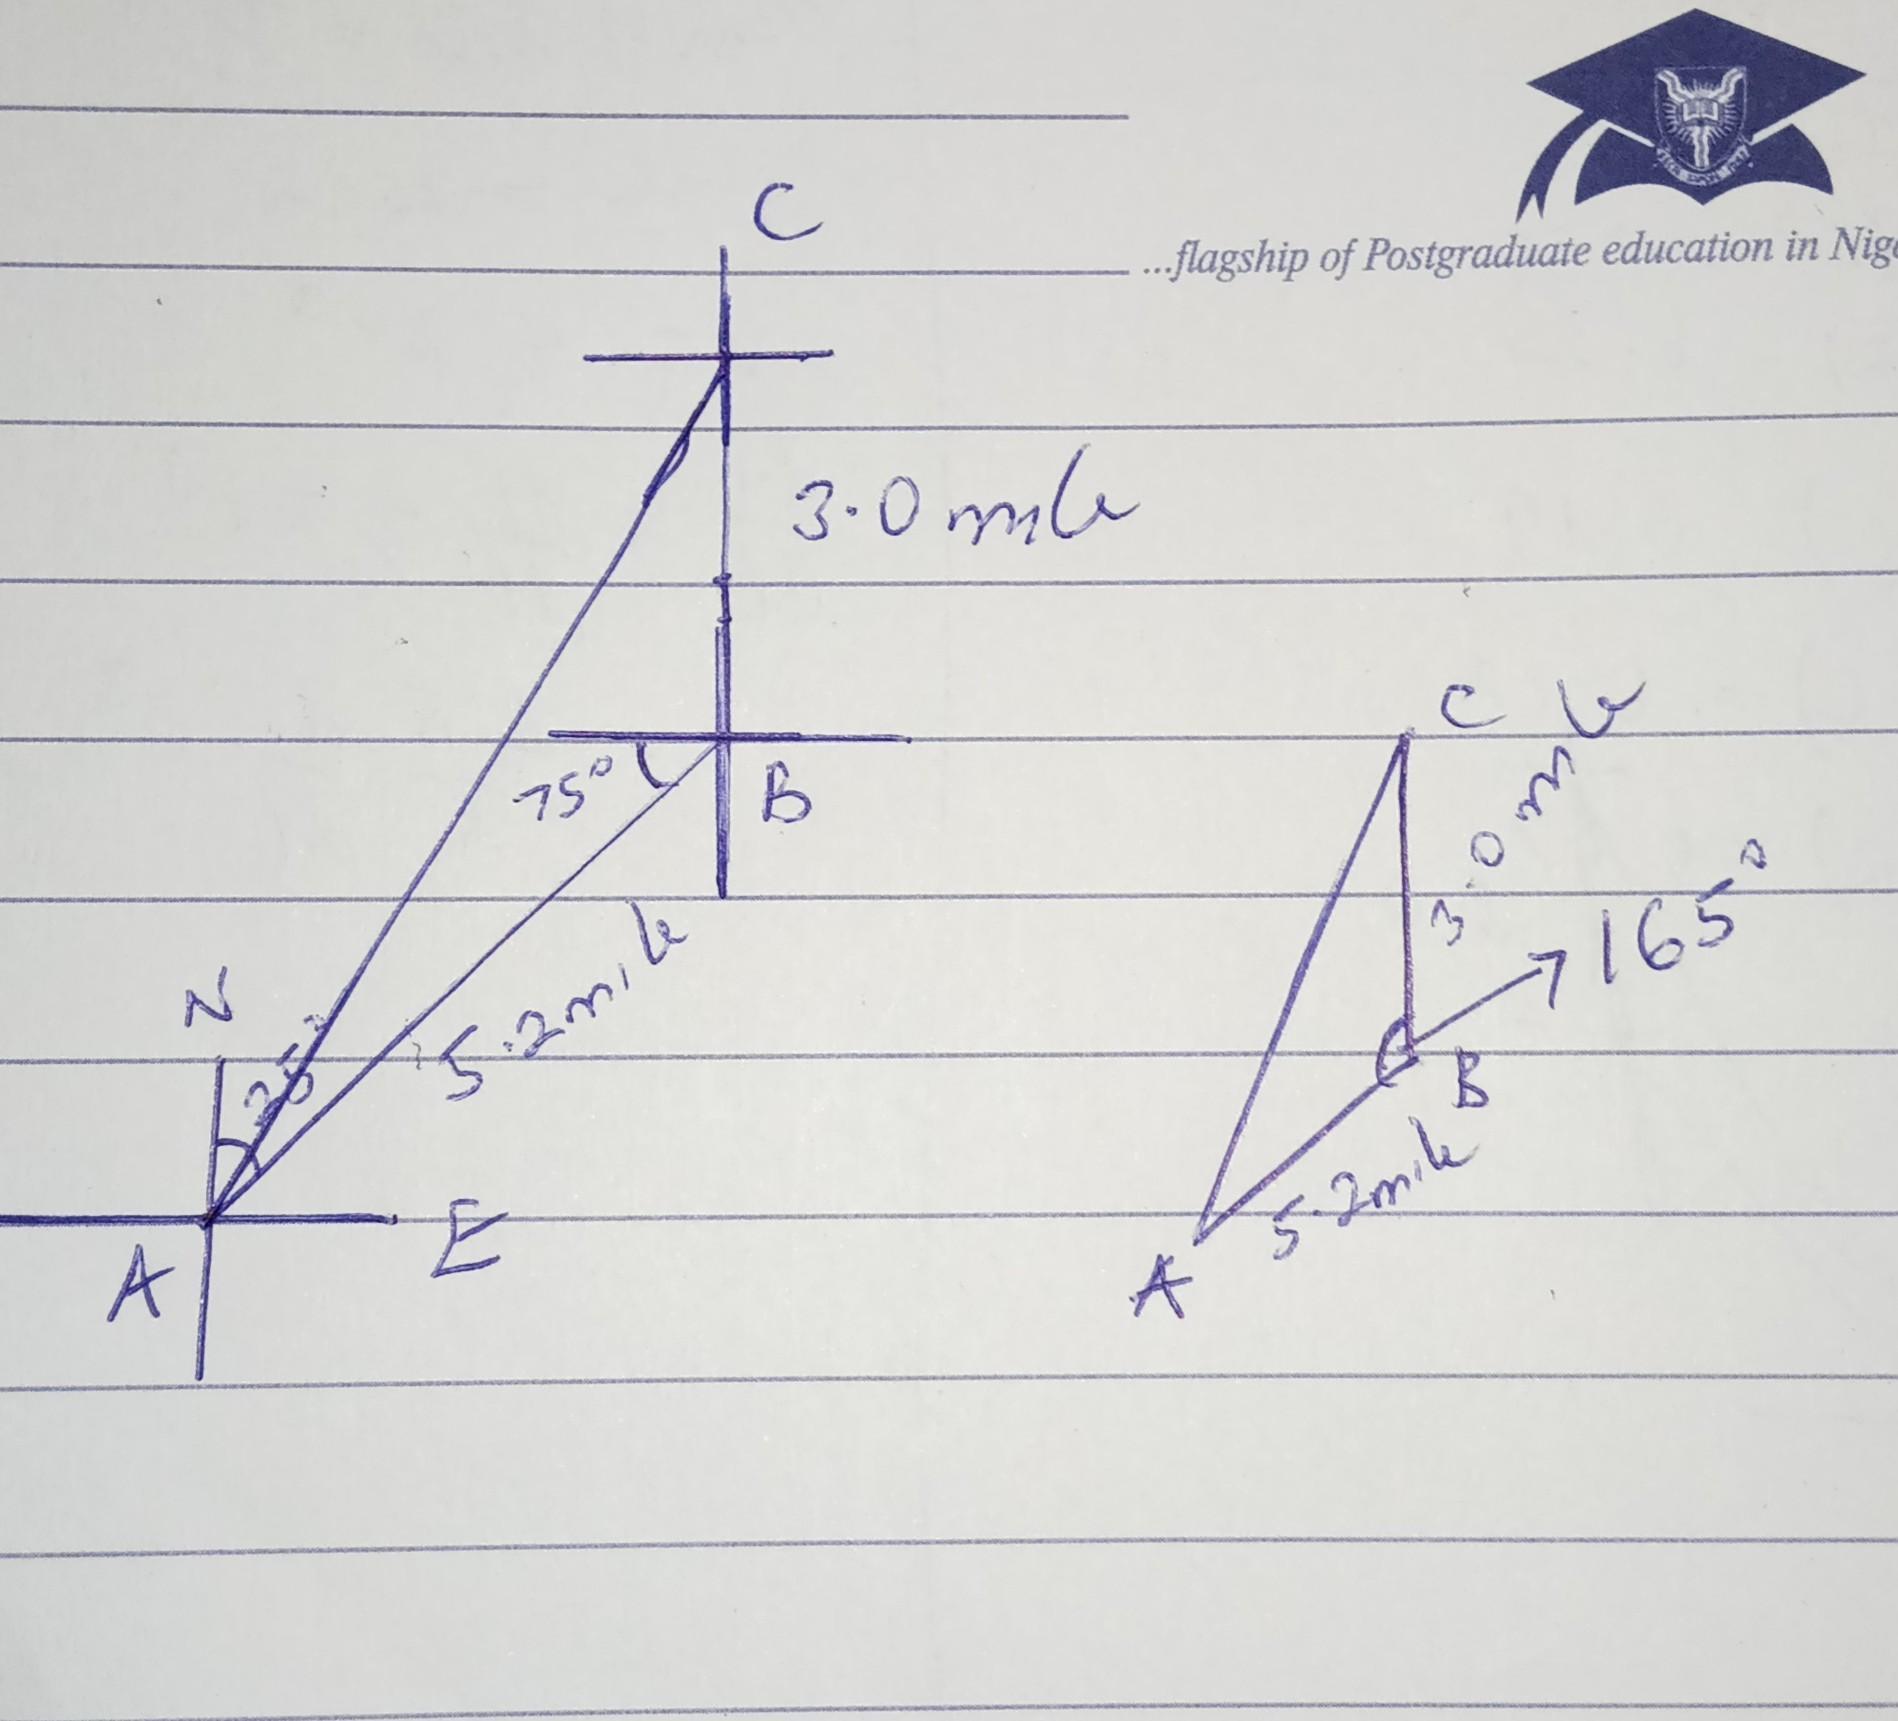 ...flagship of Postgraduate education in Nige
C
3.0 mile
75°
B
5.2 mile
N
A
E
C
3.0 mile
165°
B
5.2 mile
A